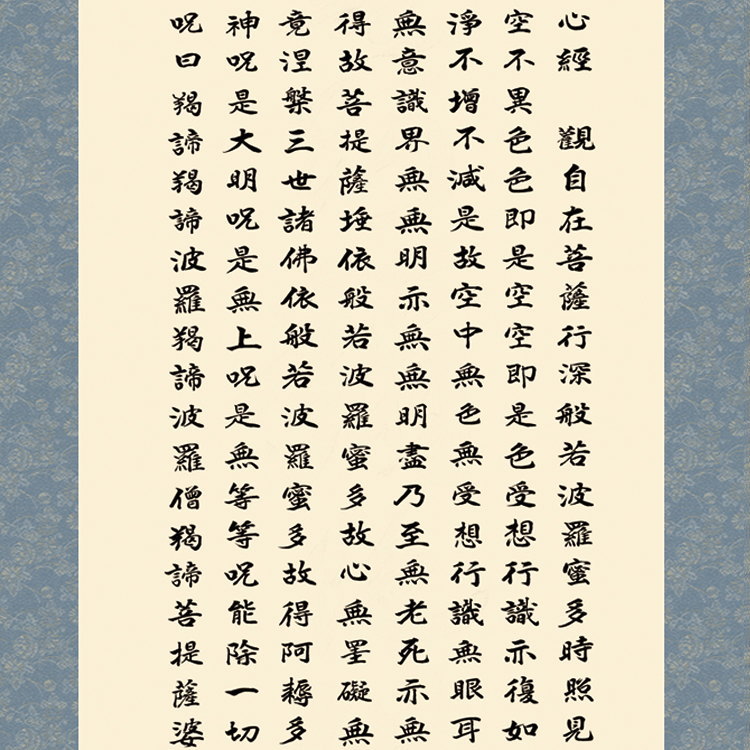 心經 觀自在菩薩行深般若波羅蜜多時照見
空不異色色即是空空即是色受想行識亦復如
淨不增不減是故空中無色無受想行識無眼耳
無意識界無無明亦無無明盡乃至無老死亦無
得故菩提薩埵依般若波羅蜜多故心無罣礙無
竟涅槃三世諸佛依般若波羅蜜多故得阿耨多
神呪是大明呪是無上呪是無等等呪能除一切
呪曰羯諦羯諦波羅羯諦波羅僧羯諦菩提薩婆